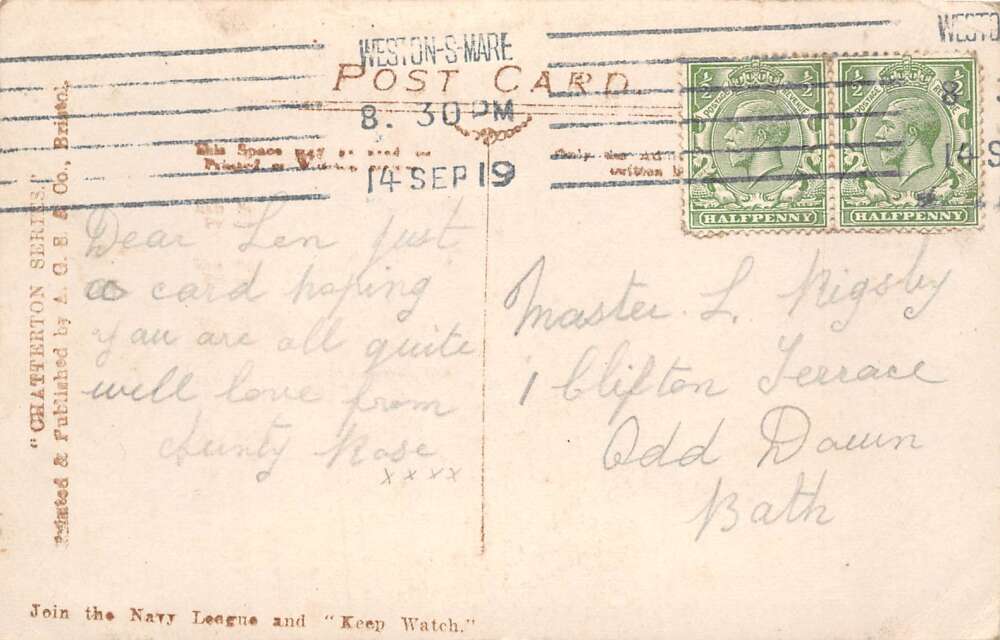 WESTON-S-MARE
8. 30 PM
14 SEP 19
WESTO
8
14 S
POST CARD.
½ ½
POSTAGE
HALFPENNY
½ ½
POSTAGE
HALFPENNY
This Space may be used
Printed
Only the Ad
written
"CHATTERTON SERIES."
Printed & Published by A. G. S. & Co., Bristol.
Dear Len just
a card hoping
you are all quite
well love from
Aunty Rose
xxxx
Master L. Rigsby
1 Clifton Terrace
Odd Down
Bath
Join the Navy League and "Keep Watch."